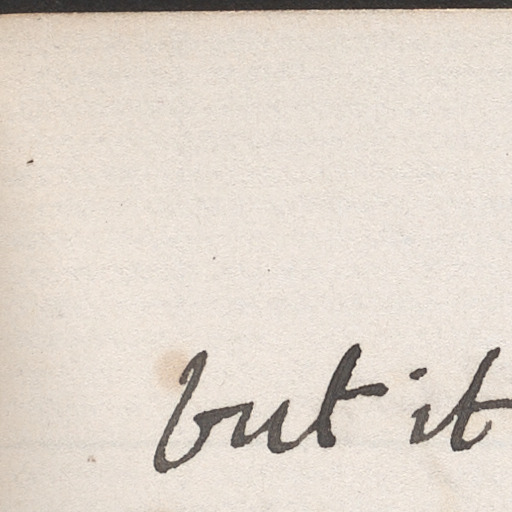 but it